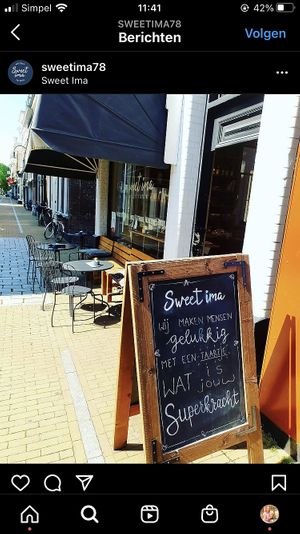 Simpel
11:41
42%
SWEETIMA78
Berichten
Volgen
Sweet
ima
sweetima78
Sweet Ima
Sweet ima
Sweet ima
WIJ MAKEN MENSEN
gelukkig
MET EEN TAARTJE
WAT is
jouw
Superkracht